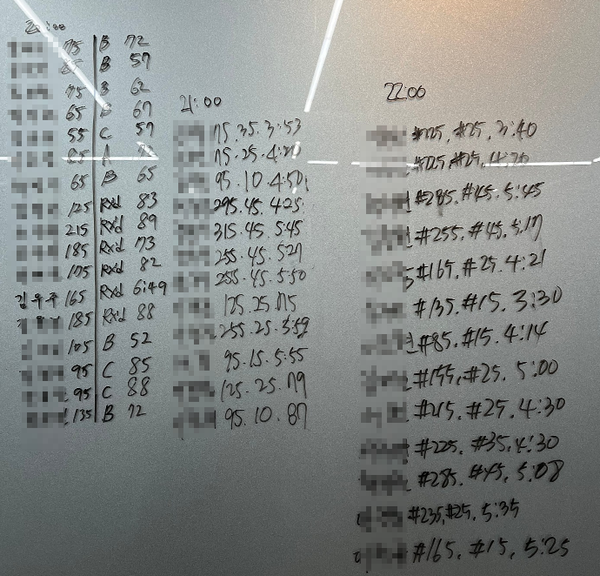 75 B 72
B 57
75 B 62
65 67
55 C 57
85 A
65 B 65
125 Rxd 83
215 Rxd 89
185 Rxd 73
175 Rxd 82
165 Rxd 6:49
185 Rxd 88
105 B 52
95 C 85
95 C 88
135 B 72
21:00
75.35.3:53
75.25.4:21
95.10.4:50
295.45.4:25
315.45.5:45
255.45.5:27
255.45.5:50
125.25.
255.25.3:59
95.15.5:55
125.25.79
95.10.87
22:00
#225, #25, 3:40
#25,
#285, #45. 5:45
#255, #45, 5:17
#165, #25. 4:21
#135, #15. 3:30
#85, #15. 4:14
#155, #25. 5:00
#215, #25. 4:30
#225, #35, 4:30
#285. #45, 5:08
#235, #25, 5:35
#165, #15, 5:25